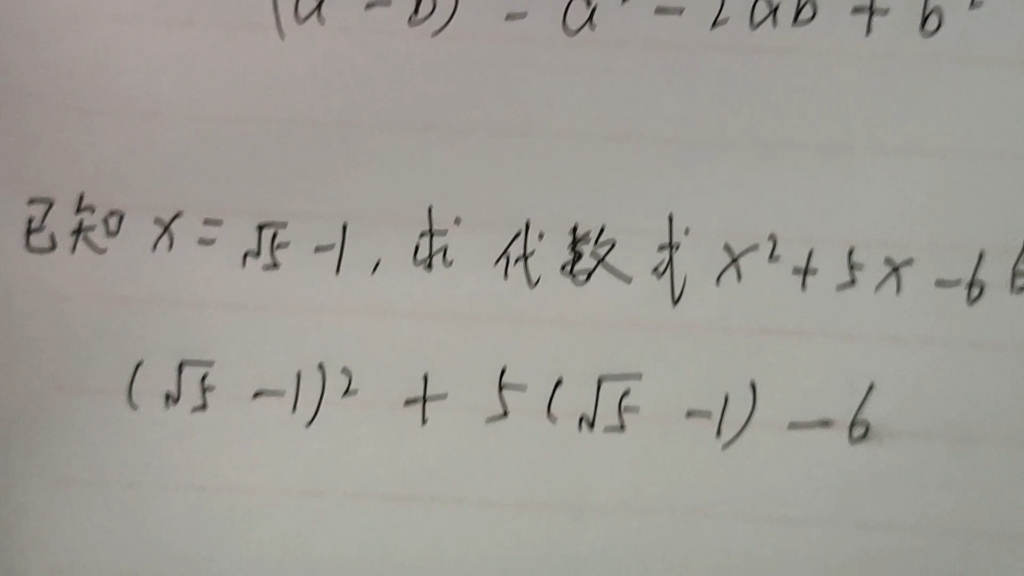 (a - b)² = a² - 2ab + b²
已知 x = √5 - 1, 求代数式 x² + 5x - 6
(√5 - 1)² + 5(√5 - 1) - 6